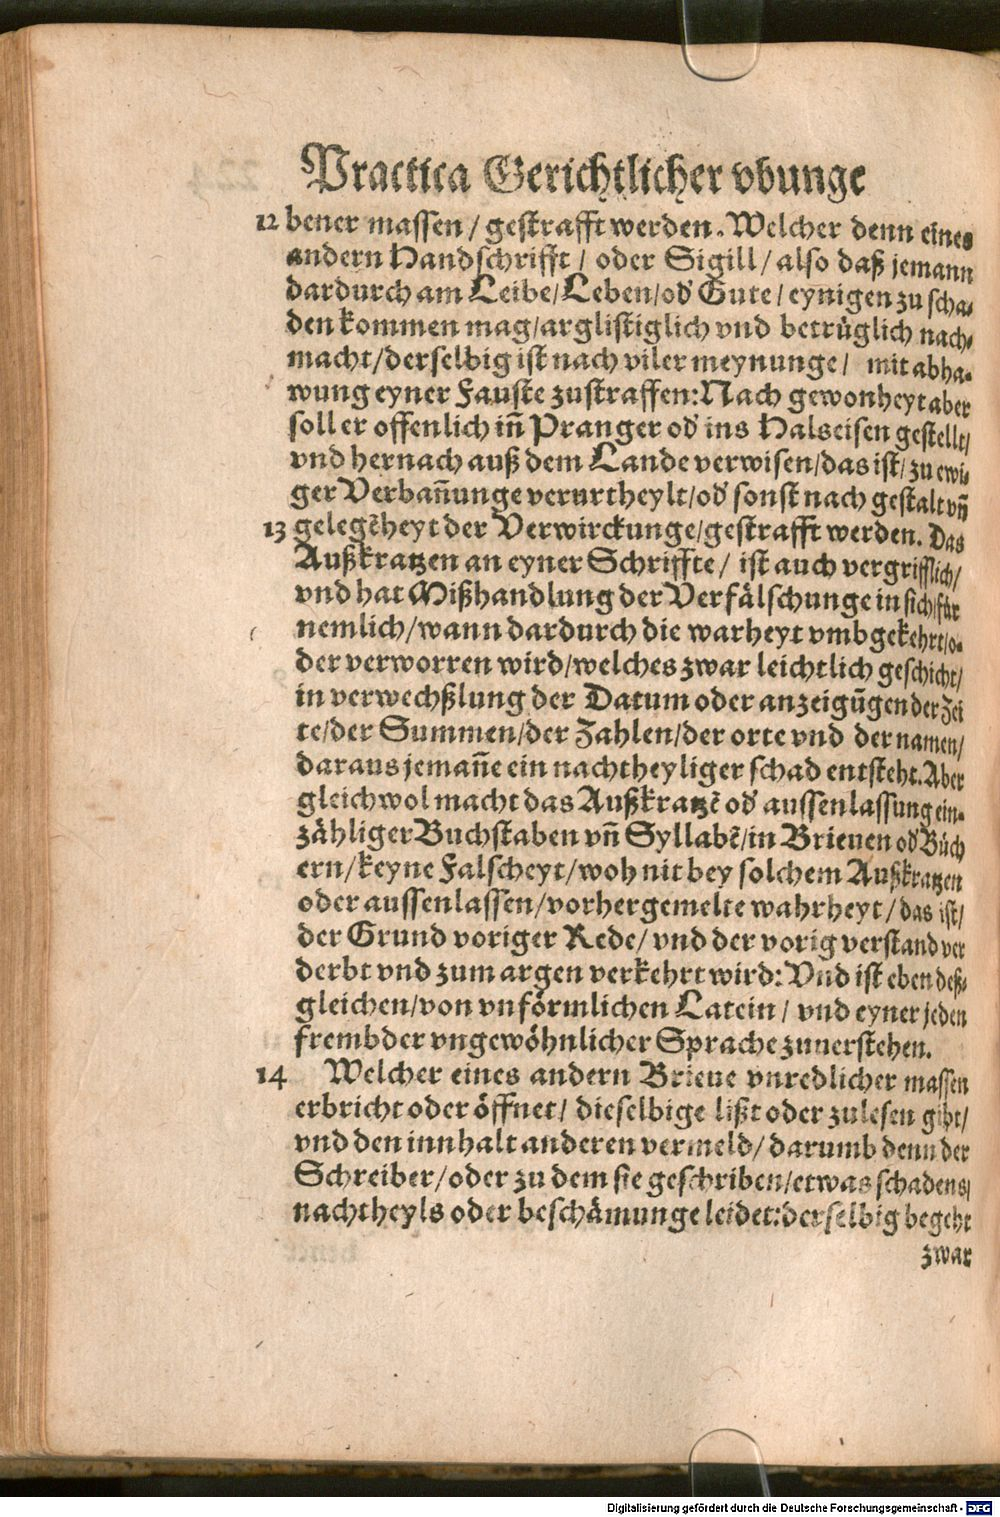 Practica Gerichtlicher vbunge
12 bener massen / gestrafft werden. Welcher denn eines
andern Handschrifft / oder Sigill / also daß jemann
dardurch am Leibe / Leben / od' Gute / eynigen zu scha-
den kommen mag / arglistiglich vnd betrüglich nach-
macht / derselbig ist nach viler meynunge / mit abha-
wung eyner Fauste zustraffen: Nach gewonheyt aber
soll er offenlich iñ Pranger od' ins Halseisen gestellt /
vnd hernach auß dem Lande verwisen / das ist / zu ewi-
ger Verbañunge verurtheylt / od' sonst nach gestalt vñ
13 gelegẽheyt der Verwirckunge / gestrafft werden. Das
Außkratzen an eyner Schriffte / ist auch vergrifflich /
vnd hat Mißhandlung der Verfälschunge in sich / für
nemlich / wann dardurch die warheyt vmbgekehrt / o-
der verworren wird / welches zwar leichtlich geschicht /
in verwechßlung der Datum oder anzeigũgen der Zei
te / der Summen / der Zahlen / der orte vnd der namen /
daraus jemañe ein nachtheyliger schad entsteht. Aber
gleichwol macht das Außkratzẽ od' aussenlassung ein-
zähliger Buchstaben vñ Syllabẽ / in Brieuen od' Büch
ern / keyne Falscheyt / woh nit bey solchem Außkratzen
oder aussenlassen / vorhergemelte wahrheyt / das ist /
der Grund voriger Rede / vnd der vorig verstand ver
derbt vnd zum argen verkehrt wird: Vnd ist eben deß-
gleichen / von vnförmlichen Latein / vnd eyner jeden
frembder vngewöhnlicher Sprache zuuerstehen.
14 Welcher eines andern Brieue vnredlicher massen
erbricht oder öffnet / dieselbige lißt oder zulesen gibt /
vnd den innhalt anderen vermeld / darumb denn der
Schreiber / oder zu dem sie geschriben / etwas schadens /
nachtheyls oder beschämunge leidet: derselbig begeht
zwar
Digitalisierung gefördert durch die Deutsche Forschungsgemeinschaft - DFG